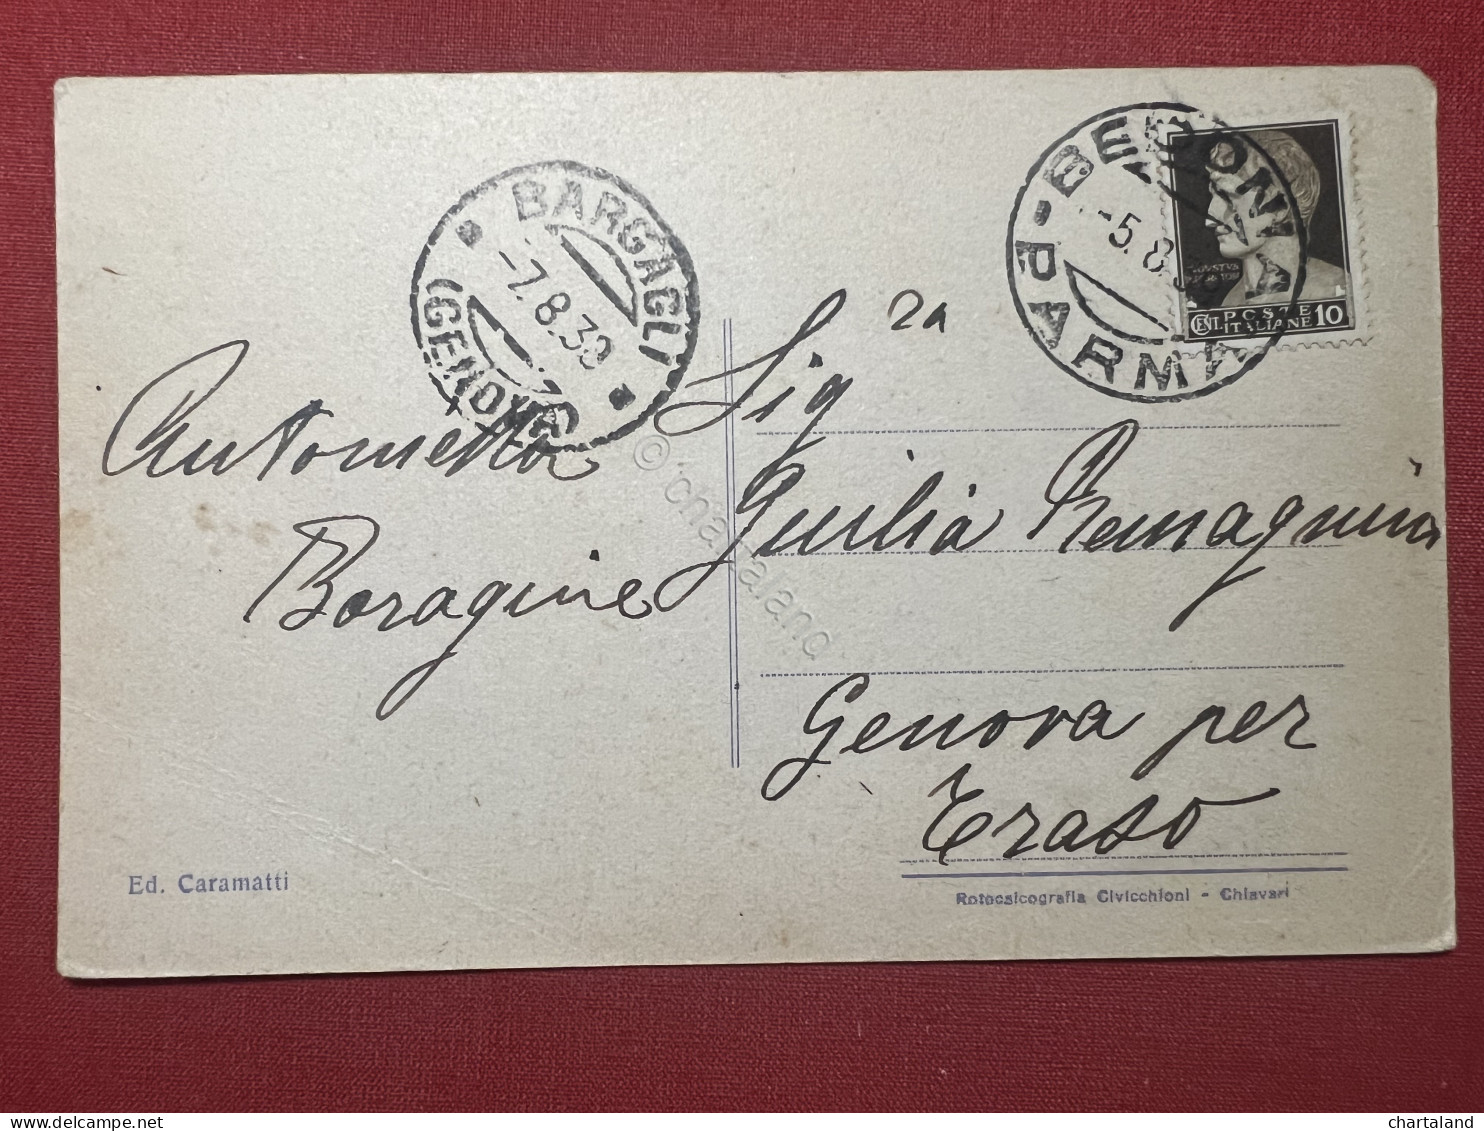 BARGAGLI
(GENOVA)
-7.8.39
BEDONIA
-PARMA-
-5.8
POSTE
CENT. ITALIANE 10
Sig 2a
Antonietta
Boragine
Giulia Romagnina
Genova per
Traso
Ed. Caramatti
Rotocalcografia Civicchioni - Chiavari
© chartaland
chartaland
www.delcampe.net